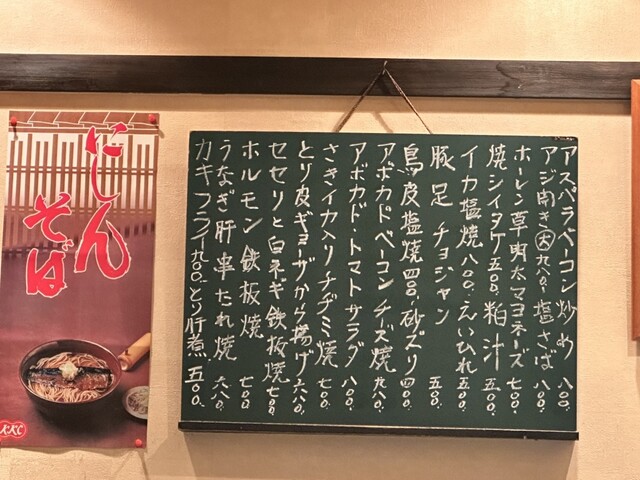 アスパラベーコン炒め 八〇〇.
アジ開き大 九八〇. 塩さば 八〇〇.
ホーレン草明太マヨネーズ 七〇〇.
焼シイタケ 五〇〇. 粕汁 五〇〇.
イカ塩焼 八〇〇. えいひれ 五〇〇.
豚足 チョジャン 五〇〇.
鳥皮塩焼 四〇〇. 砂ズリ 四〇〇.
アボカドベーコンチーズ焼 九八〇.
アボカド・トマトサラダ 八〇〇.
さきイカ入りチヂミ焼 七〇〇.
とり皮ギョーザから揚げ 六八〇.
セセリと白ネギ鉄板焼 七〇〇.
ホルモン鉄板焼 七〇〇.
うなぎ肝串たれ焼 六八〇.
カキフライ 九〇〇. とり肝煮 五〇〇.
にしん
そば
KKC